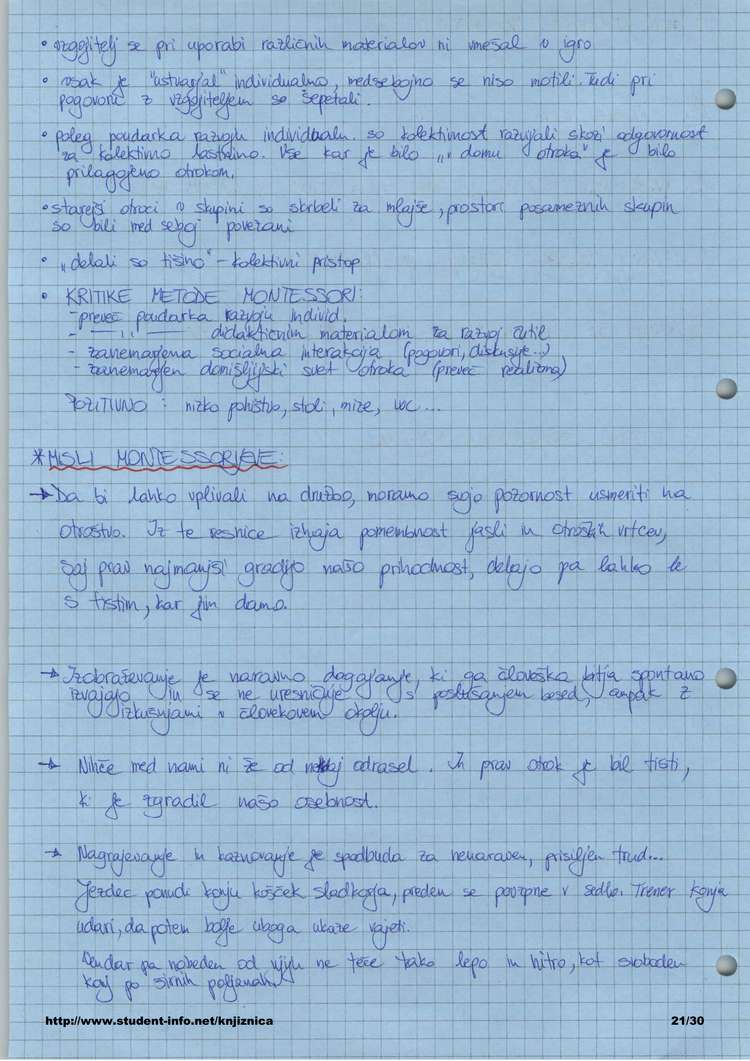 • vzgojitelj se pri uporabi različnih materialov ni vmešal v igro
• vsak je "ustvarjal" individualno, medsebojno se niso motili. Tudi pri
pogovoru z vzgojiteljem so šepetali.
• poleg poudarka razvoju individualn. so kolektivnost razvijali skozi odgovornost
za kolektivno lastnino. Vse kar je bilo „v domu otroka" je bilo
prilagojeno otrokom.
• starejši otroci v skupini so skrbeli za mlajše, prostori posameznih skupin
so bili med seboj povezani
• „delali so tišino" - kolektivni pristop
• KRITIKE METODE MONTESSORI:
- preveč poudarka razvoju individ.
- —— ıı —— didaktičnim materialom za razvoj čutil
- zanemarjena socialna interakcija (pogovori, diskusije...)
- zanemarjen domišljijski svet otroka (preveč realizma)
POZITIVNO: nizko pohištvo, stoli, mize, WC...
* MISLI MONTESSORIJEVE:
→ Da bi lahko vplivali na družbo, moramo svojo pozornost usmeriti na
otroštvo. Iz te resnice izhaja pomembnost jasli in otroških vrtcev,
saj prav najmanjši gradijo našo prihodnost, delajo pa lahko le
s tistim, kar jim damo.
→ Izobraževanje je naravno dogajanje, ki ga človeška bitja spontano
izvajajo in se ne uresničuje s poslušanjem besed, ampak z
izkušnjami v človekovem okolju.
→ Nihče med nami ni že od nekdaj odrasel. In prav otrok je bil tisti,
ki je zgradil našo osebnost.
→ Nagrajevanje in kaznovanje je spodbuda za nenaraven, prisiljen trud...
Jezdec ponudi konju košček sladkorja, preden se povzpne v sedlo. Trener konja
udari, da potem bolje uboga ukaze vajeti.
Vendar pa nobeden od njiju ne teče tako lepo in hitro, kot svoboden
konj po širnih poljanah.
http://www.student-info.net/knjiznica 21/30